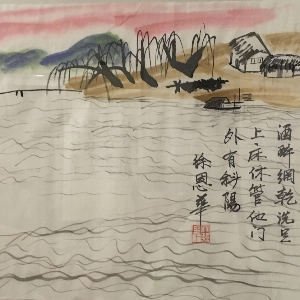 酒醉網乾洗足
上床休管他门
外有斜陽
徐恩華